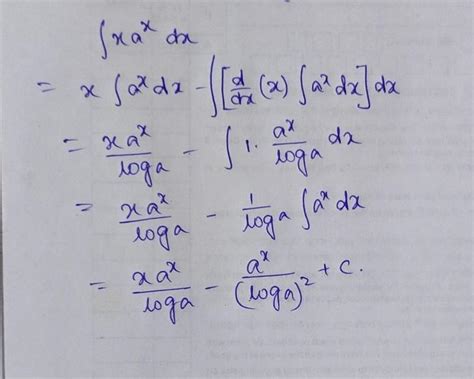 ∫xaˣ dx
= x ∫aˣ dx - ∫[d/dx (x) ∫aˣ dx] dx
= xaˣ/loga - ∫ 1. aˣ/loga dx
= xaˣ/loga - 1/loga ∫aˣ dx
= xaˣ/loga - aˣ/(loga)² + c.